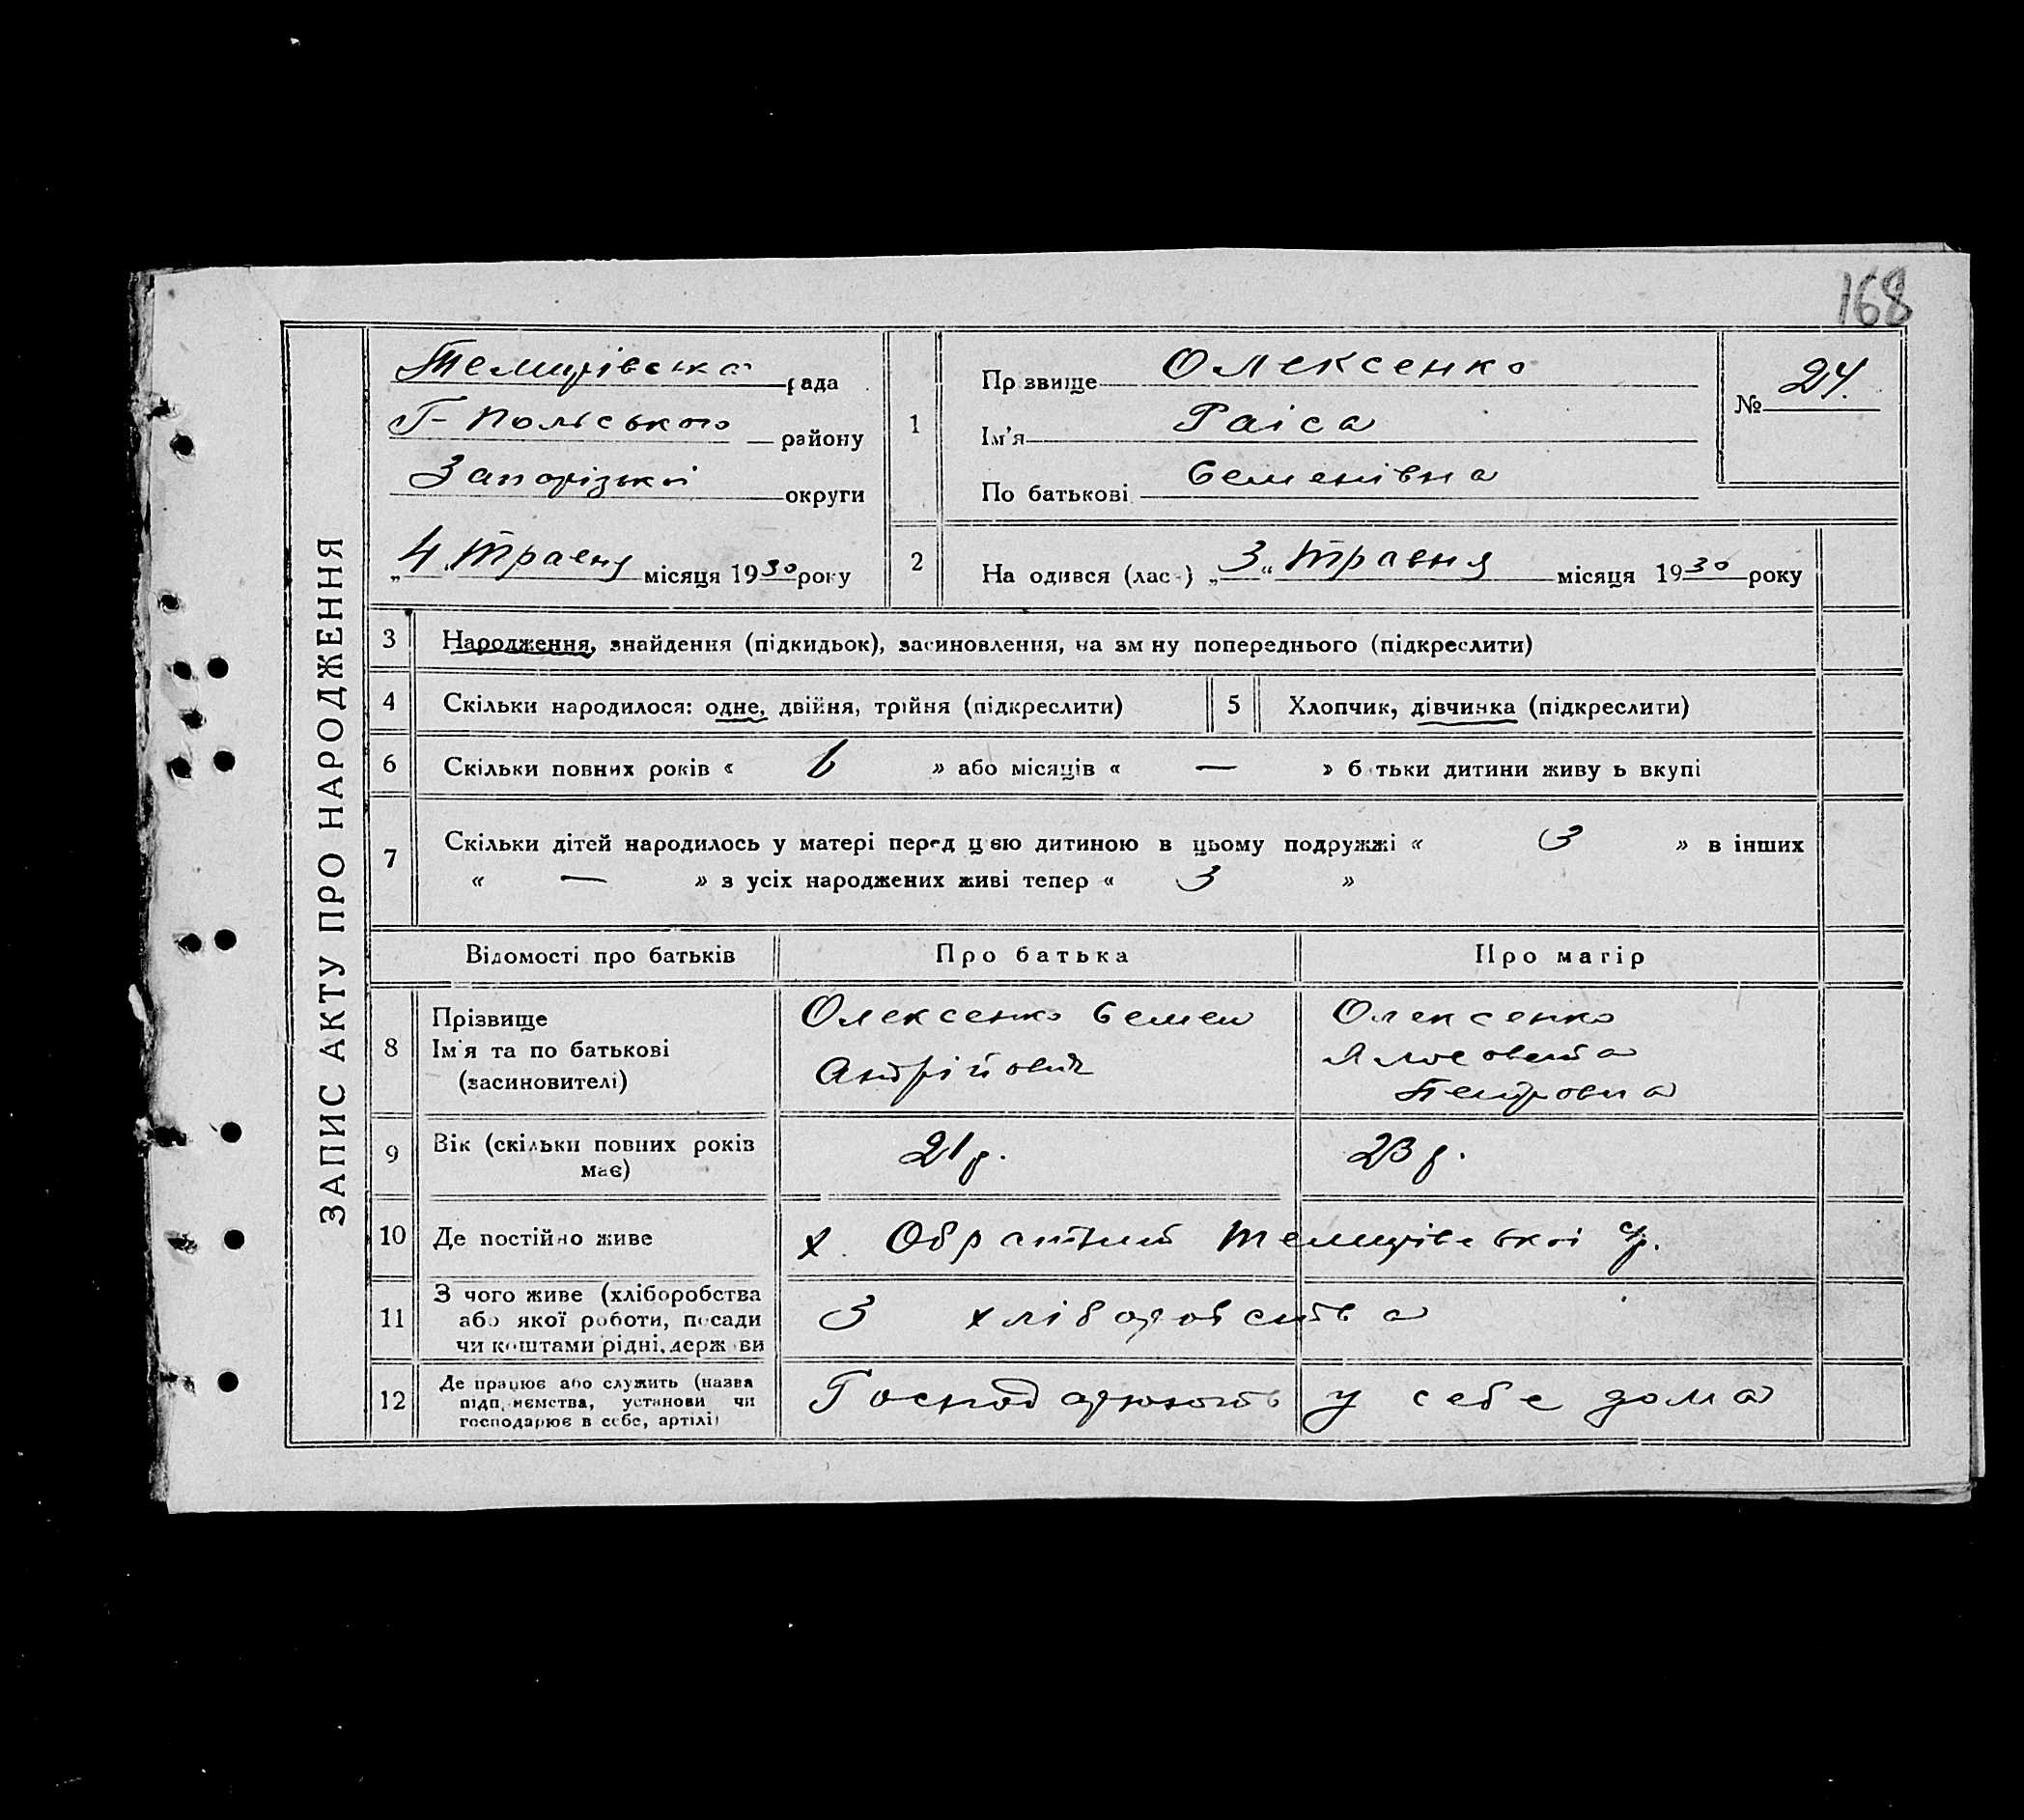 168
ЗАПИС АКТУ ПРО НАРОДЖЕННЯ
Темирівська рада
Г-Польського району
Запорізької округи
„4" Травня місяця 1930 року
1
Прізвище Олексенко
Ім'я Раіса
По батькові Семенівна
№ 24.
2
На одився (лас-) „3" Травня місяця 1930 року
3 Народження, знайдення (підкидьок), засиновлення, на зм ну попереднього (підкреслити)
4 Скільки народилося: одне, двійня, трійня (підкреслити) 5 Хлопчик, дівчинка (підкреслити)
6 Скільки повних років « 6 » або місяців « — » б тьки дитини живу ь вкупі
7 Скільки дітей народилось у матері перед цією дитиною в цьому подружжі « 3 » в інших
« — » з усіх народжених живі тепер « 3 »
Відомості про батьків Про батька Про матір
8 Прізвище
Ім'я та по батькові
(засиновителі)
Олексенко Семен
Андрійович
Олексенко
Петровна
9 Вік (скільки повних років
має)
21 р. 23 р.
10 Де постійно живе х. Обратний Темирівської с/р.
11 З чого живе (хліборобства
або якої роботи, посади
чи коштами рідні, держ ви
З хліборобства
12 Де працює або служить (назва
підп иємства, установи чи
господарює в себе, артілі)
Господарюють у себе дома